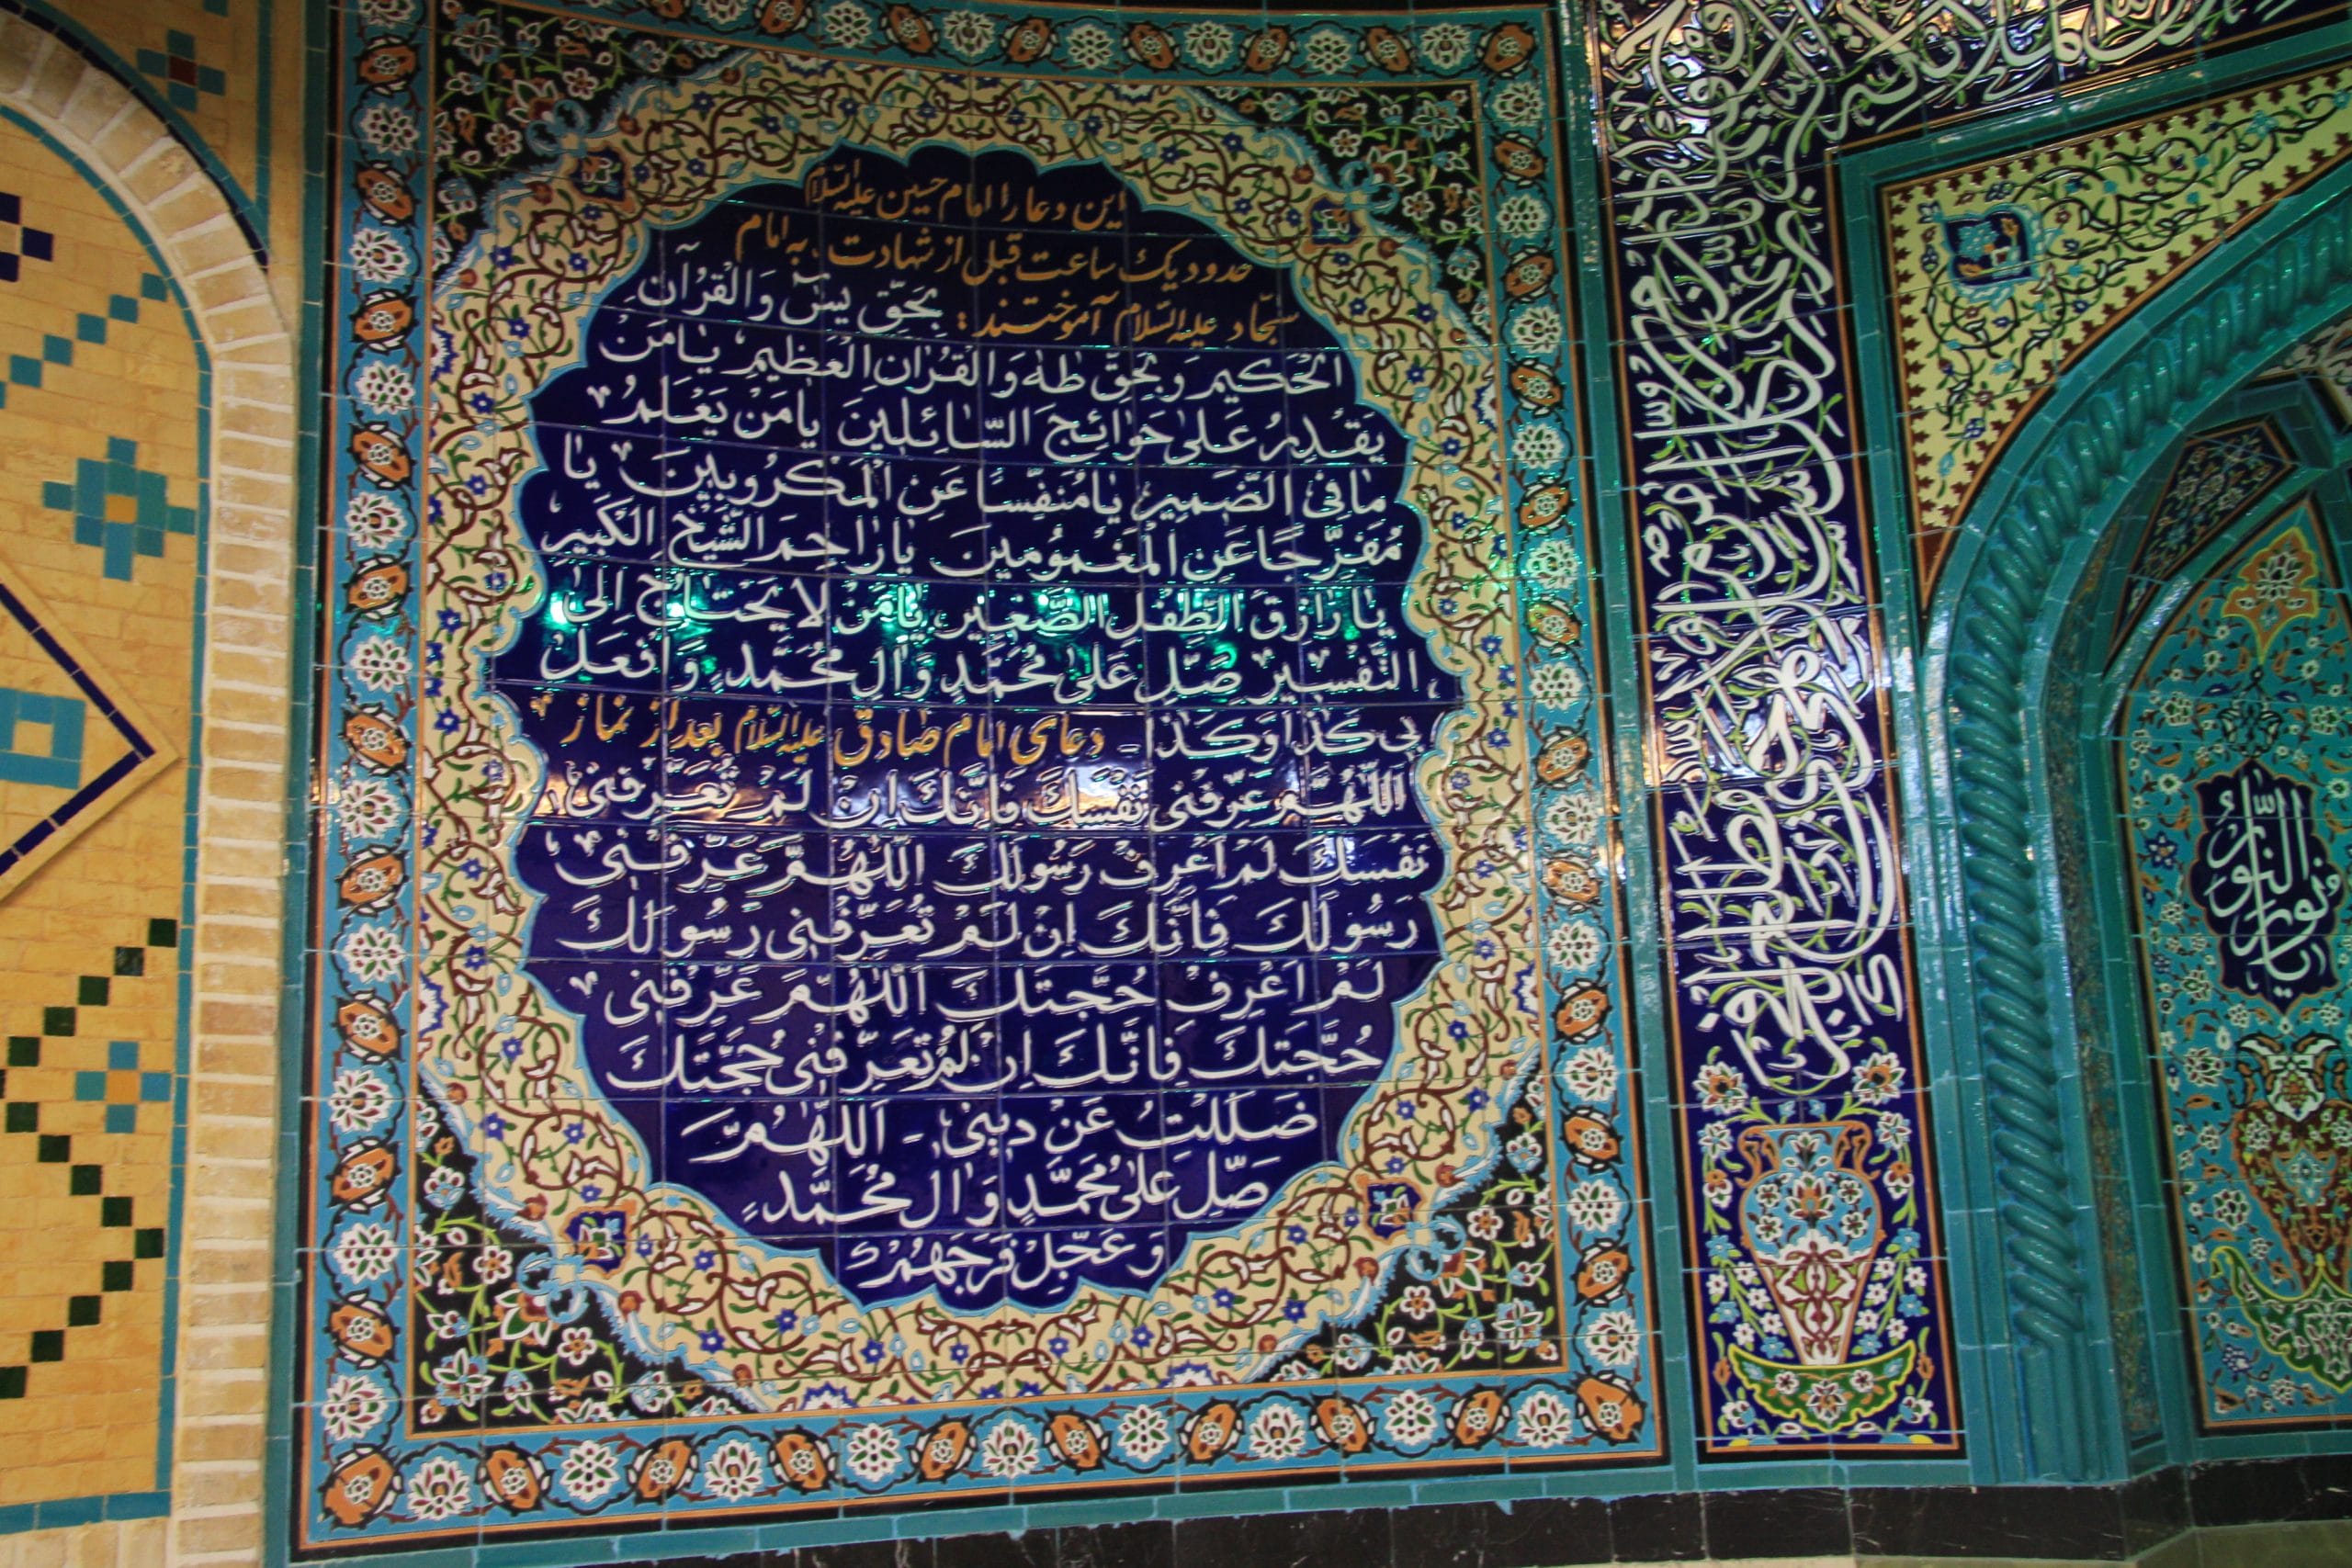 این دعا را امام حسین علیه السلام
حدود یک ساعت قبل از شهادت به امام
سجّاد علیه السّلام آموختند: بِحَقِّ یٰسٓ وَالْقُرْآنِ
الْحَکیمِ وَ بِحَقِّ طٰهٰ وَالْقُرْانِ الْعَظیمِ یٰا مَنْ
یَقْدِرُ عَلیٰ حَوٰائِجِ السّٰائِلینَ یٰا مَنْ یَعْلَمُ
مٰا فِی الضَّمیرِ یٰا مُنَفِّسًا عَنِ الْمَکْرُوبینَ یٰا
مُفَرِّجًا عَنِ الْمَغْمُومینَ یٰا رٰاحِمَ الشَّیْخِ الْکَبیرِ
یٰا رٰازِقَ الطِّفْلِ الصَّغیرِ یٰا مَنْ لا یَحْتٰاجُ اِلَی
التَّفْسیرِ صَلِّ عَلیٰ مُحَمَّدٍ وَ آلِ مُحَمَّدٍ وَ افْعَلْ
بی کَذٰا وَ کَذٰا - دعای امام صادق علیه السّلام بعد از نماز
اَللّٰهُمَّ عَرِّفْنی نَفْسَکَ فَاِنَّکَ اِنْ لَمْ تُعَرِّفْنی
نَفْسَکَ لَمْ اَعْرِفْ رَسُولَکَ اَللّٰهُمَّ عَرِّفْنی
رَسُولَکَ فَاِنَّکَ اِنْ لَمْ تُعَرِّفْنی رَسُولَکَ
لَمْ اَعْرِفْ حُجَّتَکَ اَللّٰهُمَّ عَرِّفْنی
حُجَّتَکَ فَاِنَّکَ اِنْ لَمْ تُعَرِّفْنی حُجَّتَکَ
ضَلَلْتُ عَنْ دینی - اَللّٰهُمَّ
صَلِّ عَلیٰ مُحَمَّدٍ وَ اٰلِ مُحَمَّدٍ
وَ عَجِّلْ فَرَجَهُمْ
یا نور النّور